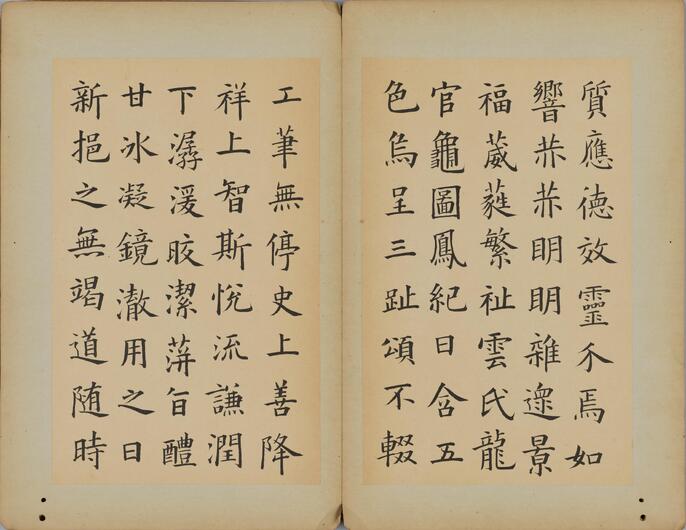 質應徳效靈介焉如
響赫赫眀眀雜遝景
福葳蕤繁祉雲氏龍
官龜圖鳳紀日含五
色烏呈三趾頌不輟
工筆無停史上善降
祥上智斯悅流謙潤
下潺湲晈潔蓱旨醴
甘冰凝鏡澈用之日
新挹之無竭道随時